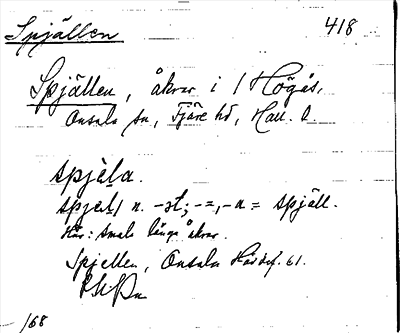 Spjällen 418
Spjällen, åkrar i 1 Högås,
Onsala sn, Fjäre hd, Hall. l.
spjɛla.
spjɛl, n. -ət; -=, -a = spjäll.
Här: smala långa åkrar.
Spjellen, Onsala
/68